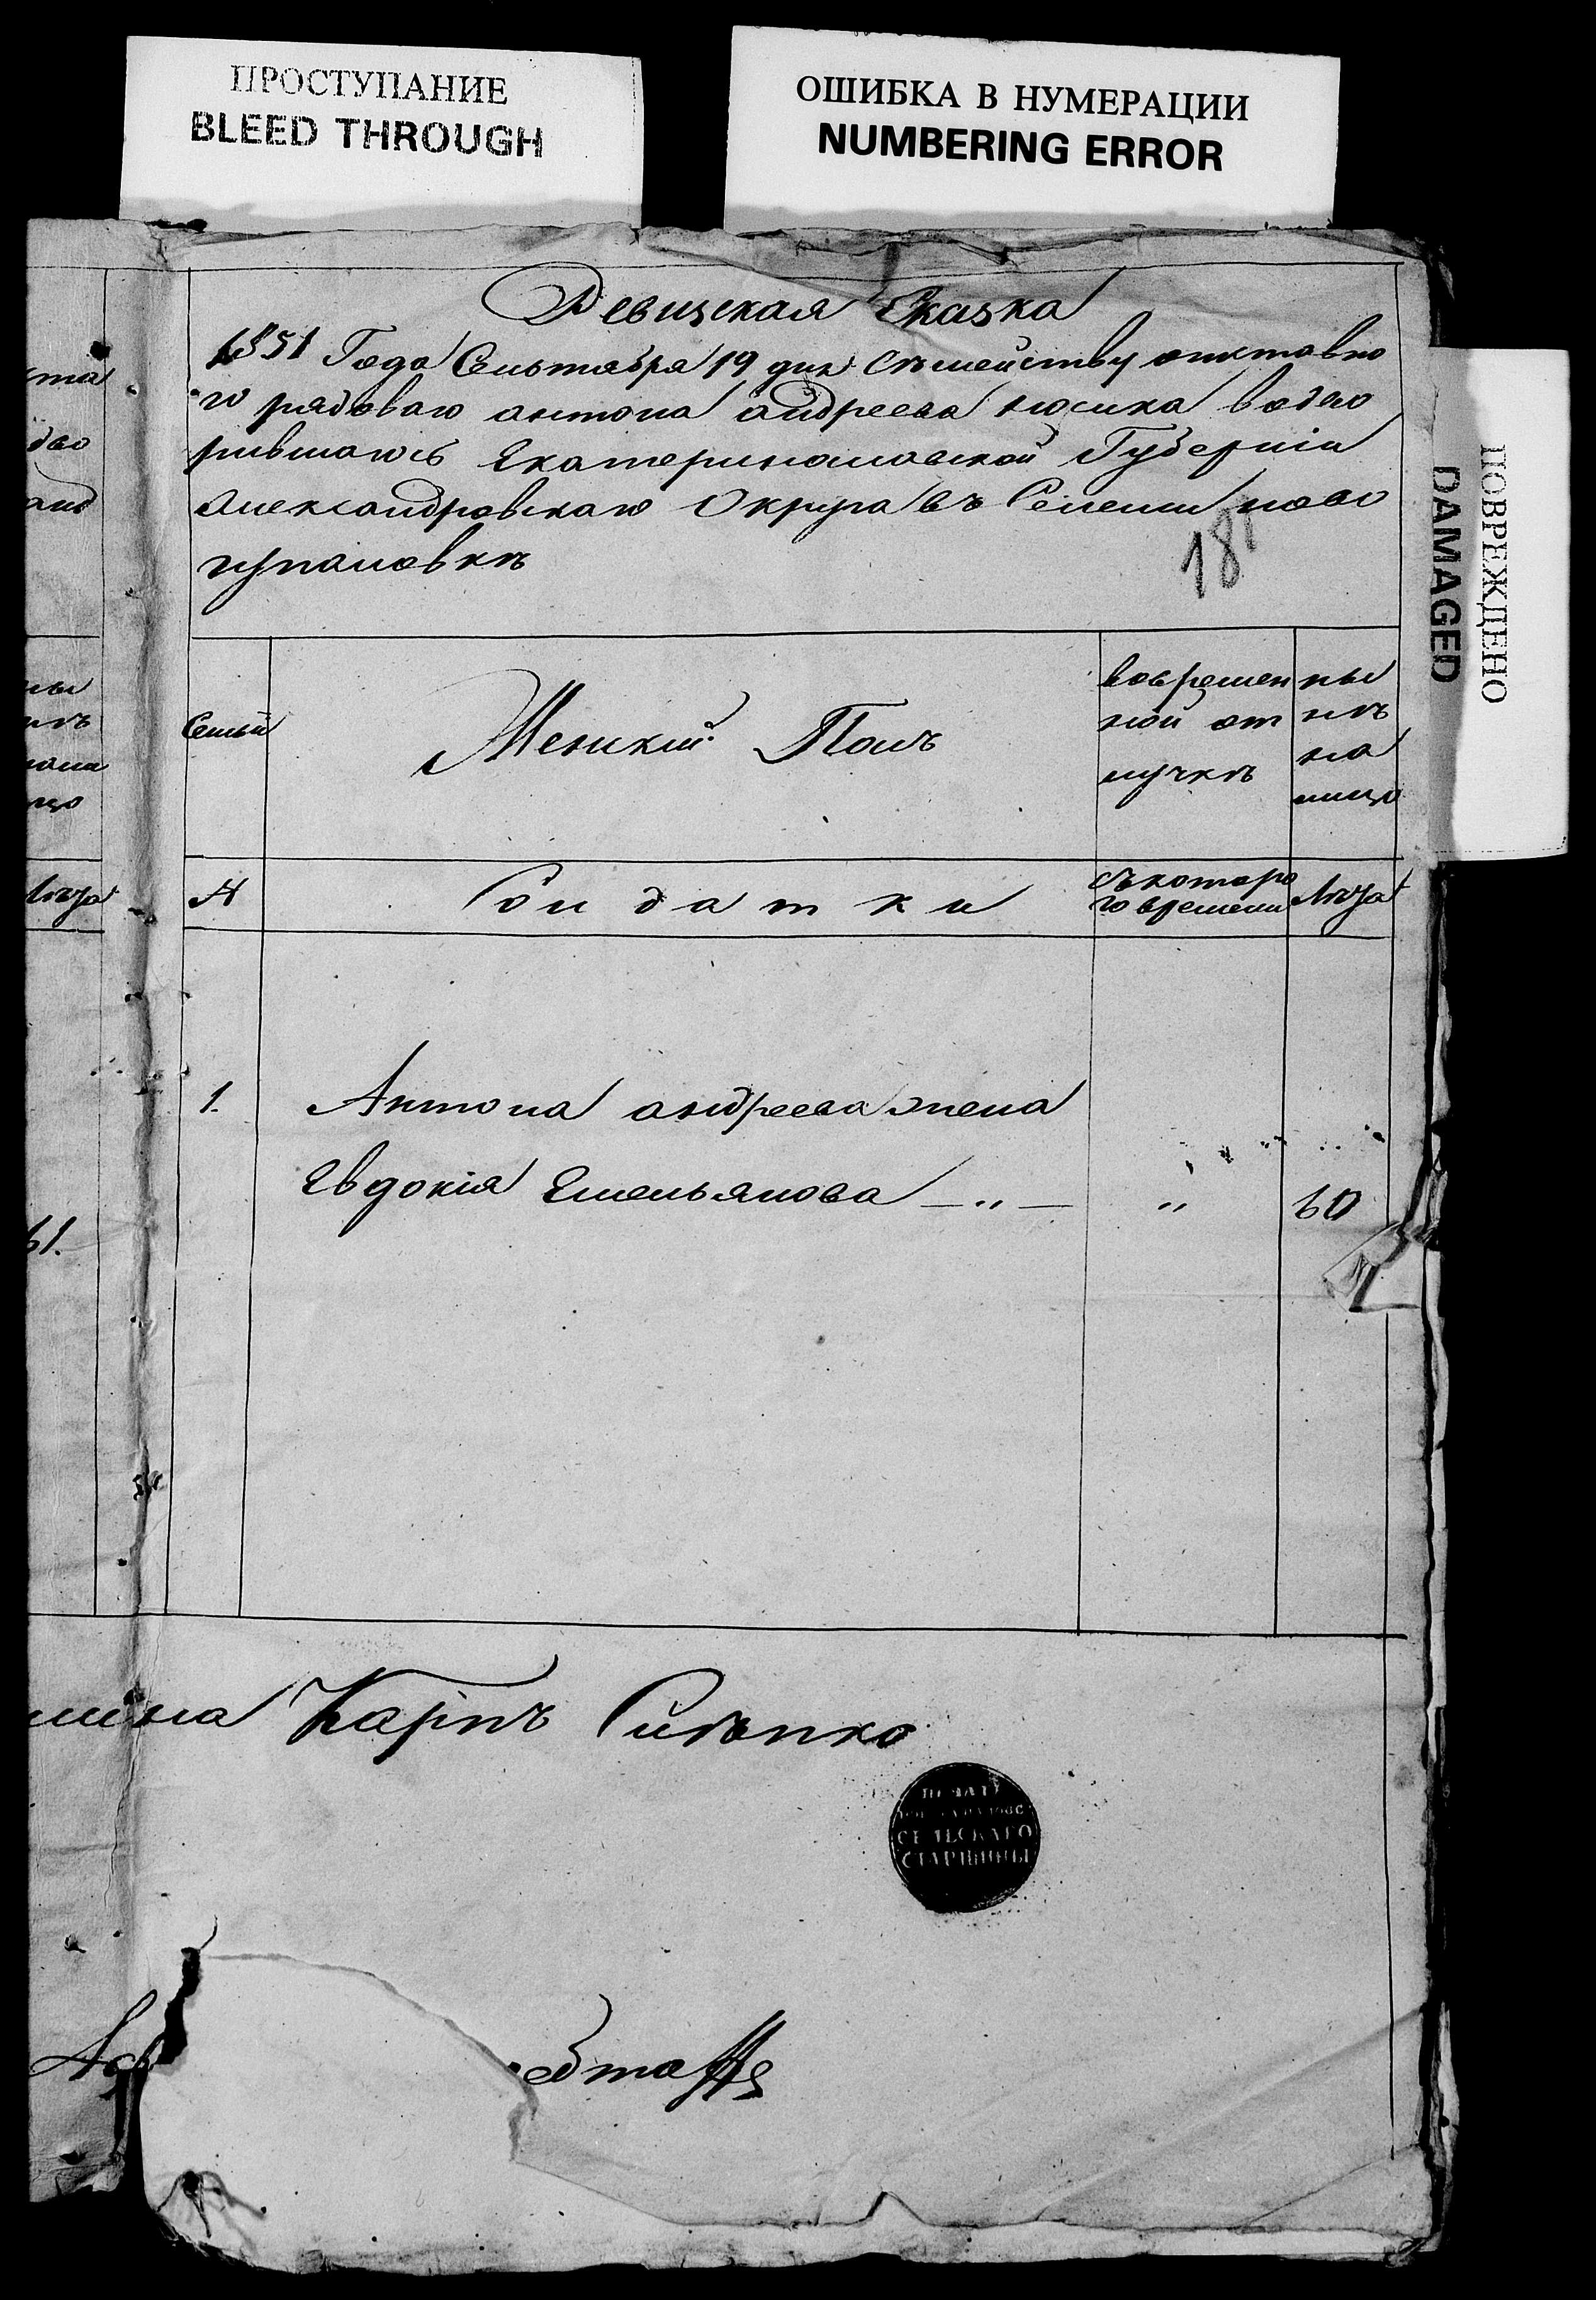 ПРОСТУПАНИЕ
BLEED THROUGH
ОШИБКА В НУМЕРАЦИИ
NUMBERING ERROR
ПОВРЕЖДЕНО
DAMAGED
Ревизская Сказка
1851 Года Сельтября 19 дня Съмейству отставно
го рядоваго антона андреева носика водво
рившагось Екатеринославской Губерніи
Александровскаго Округа въ Селеніи ново
гупаловкѣ
181
Семьи
Женскій Полъ
вовремен
ной от
лучкѣ
ны
нѣ
на
лицо
№
Солдатки
съ которо
го времени
Лѣта
1.
Антона андреева жена
Евдокія Емельянова — " —
"
60
61.
шина Карпъ
ПЕЧАТЬ
СЕЛЬСКАГО
СТАРШИНЫ